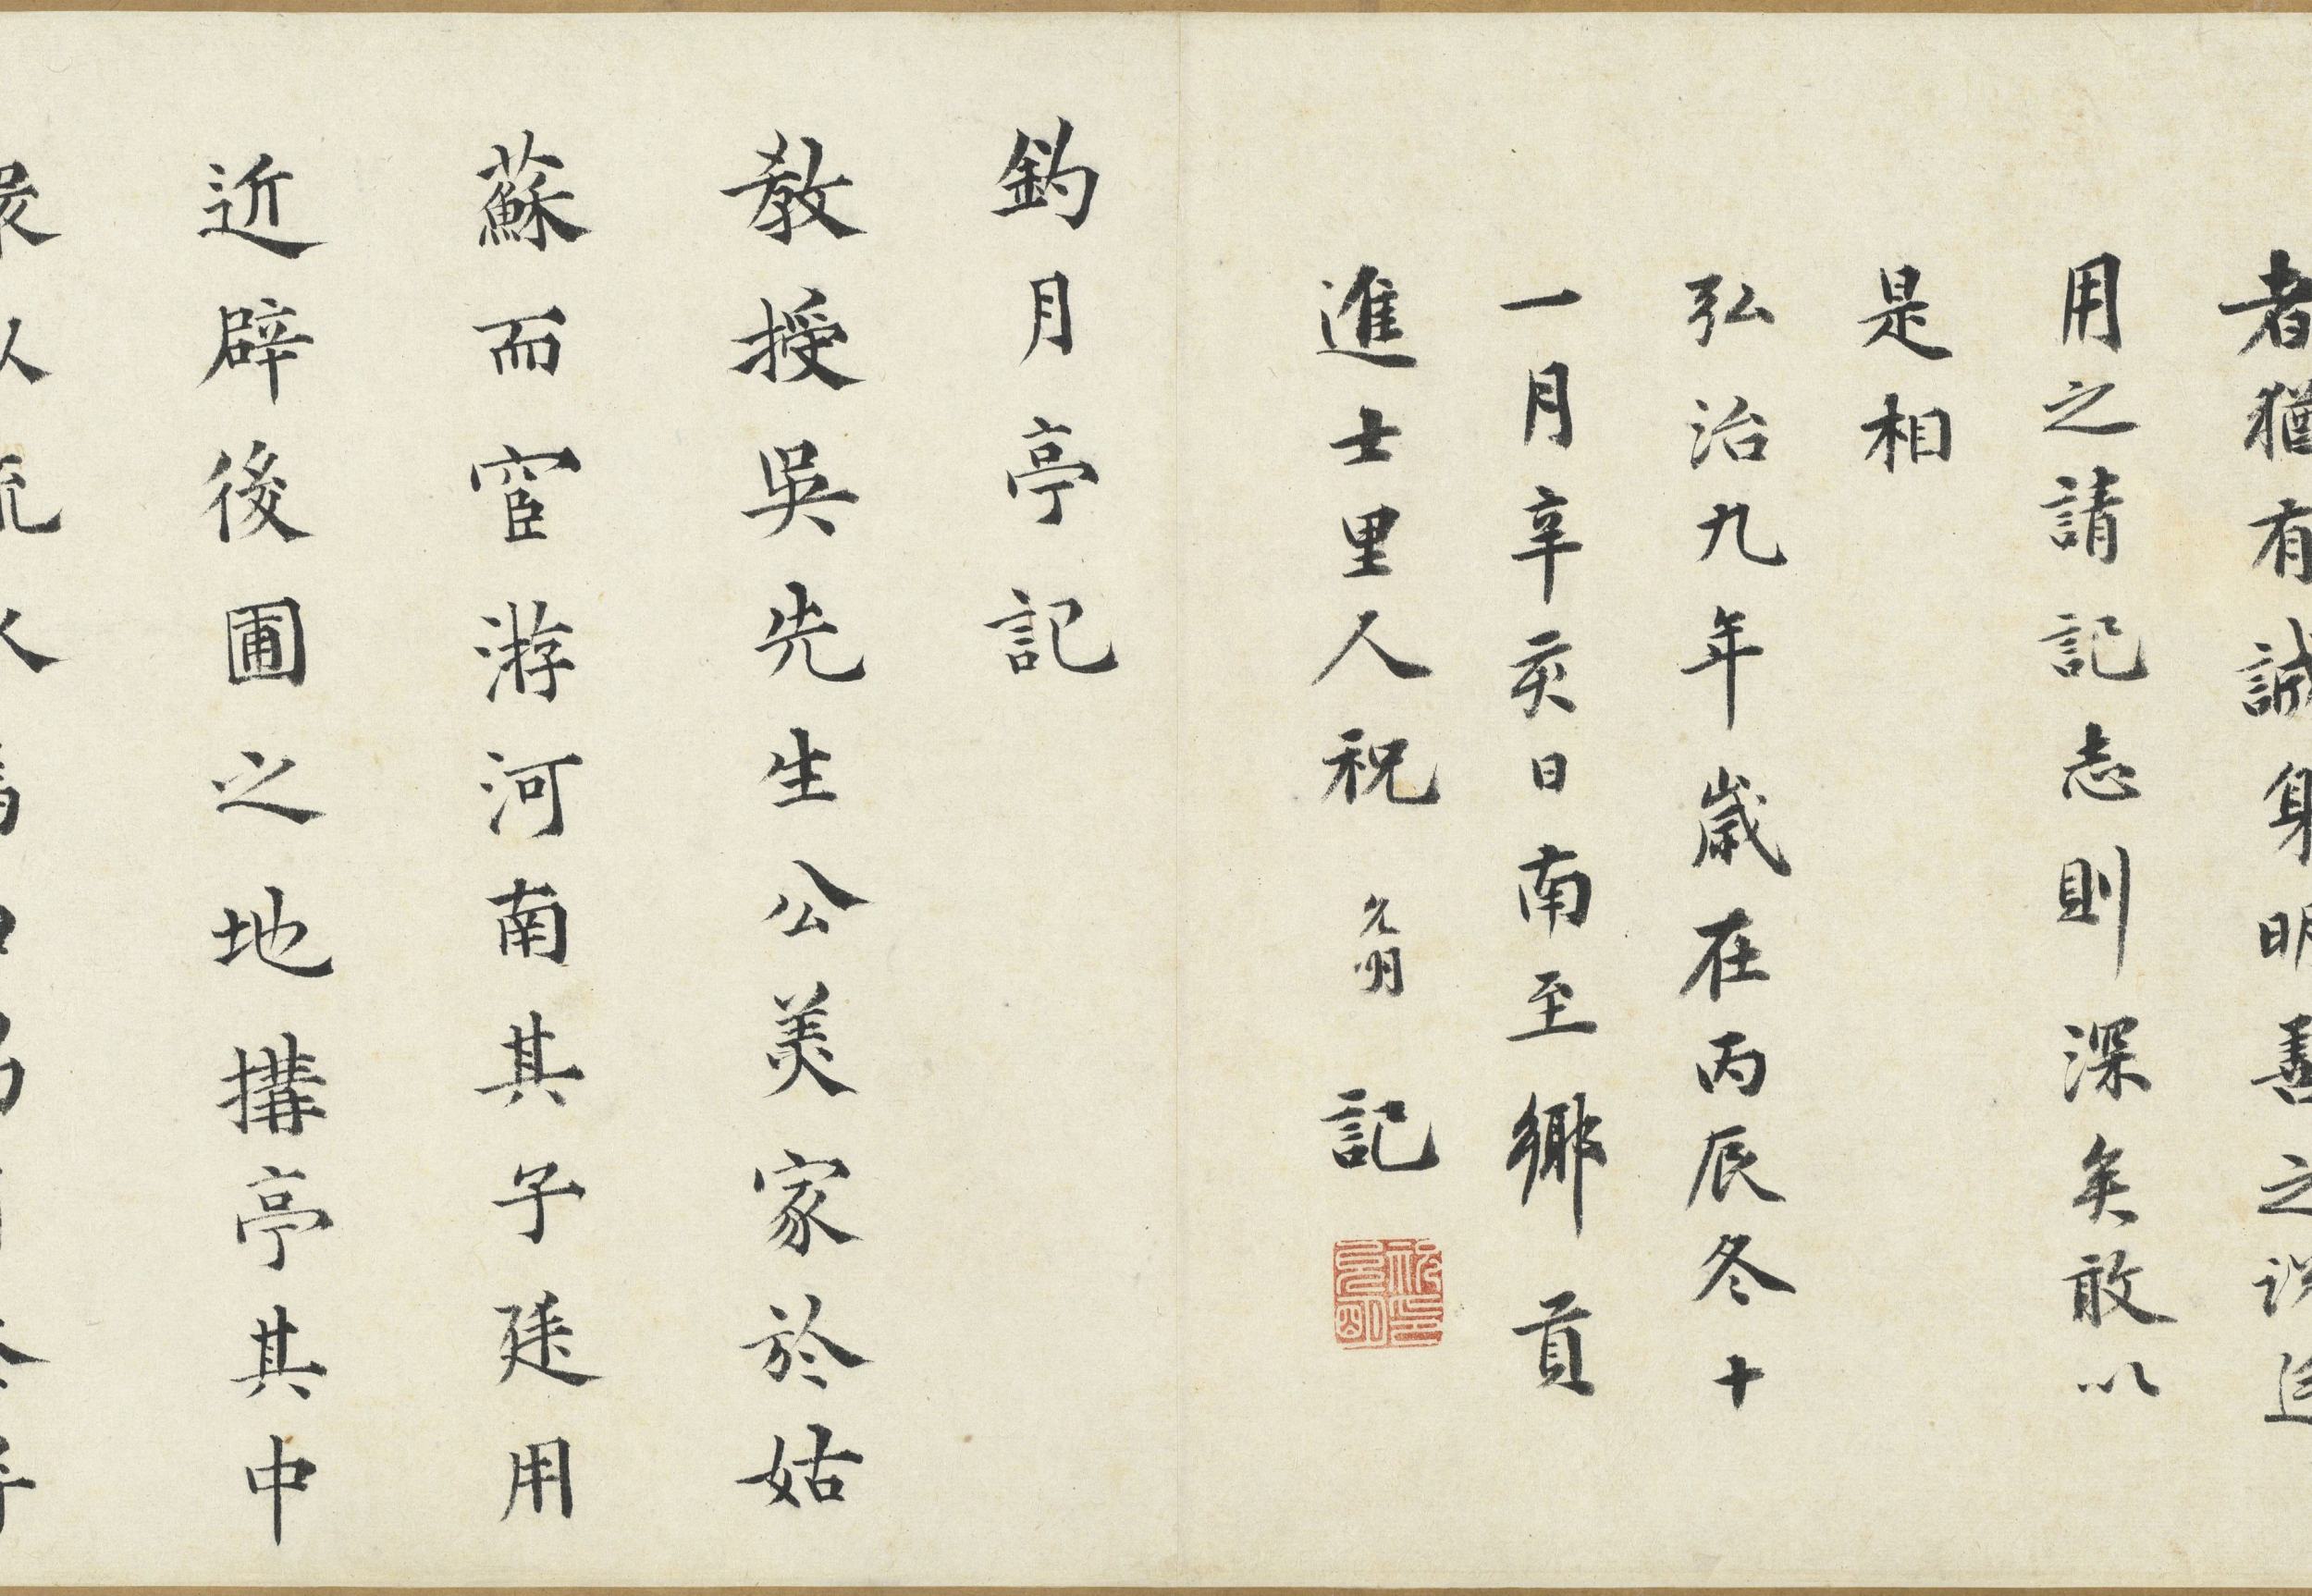 者猶有誠身明善之说
用之請記志則深矣敢以
是相
弘治九年歲在丙辰冬十
一月辛亥日南至鄉貢
進士里人祝允明記
祝允明印
釣月亭記
教授吳先生公美家於姑
蘇而宦游河南其子廷用
近辟後圃之地搆亭其中